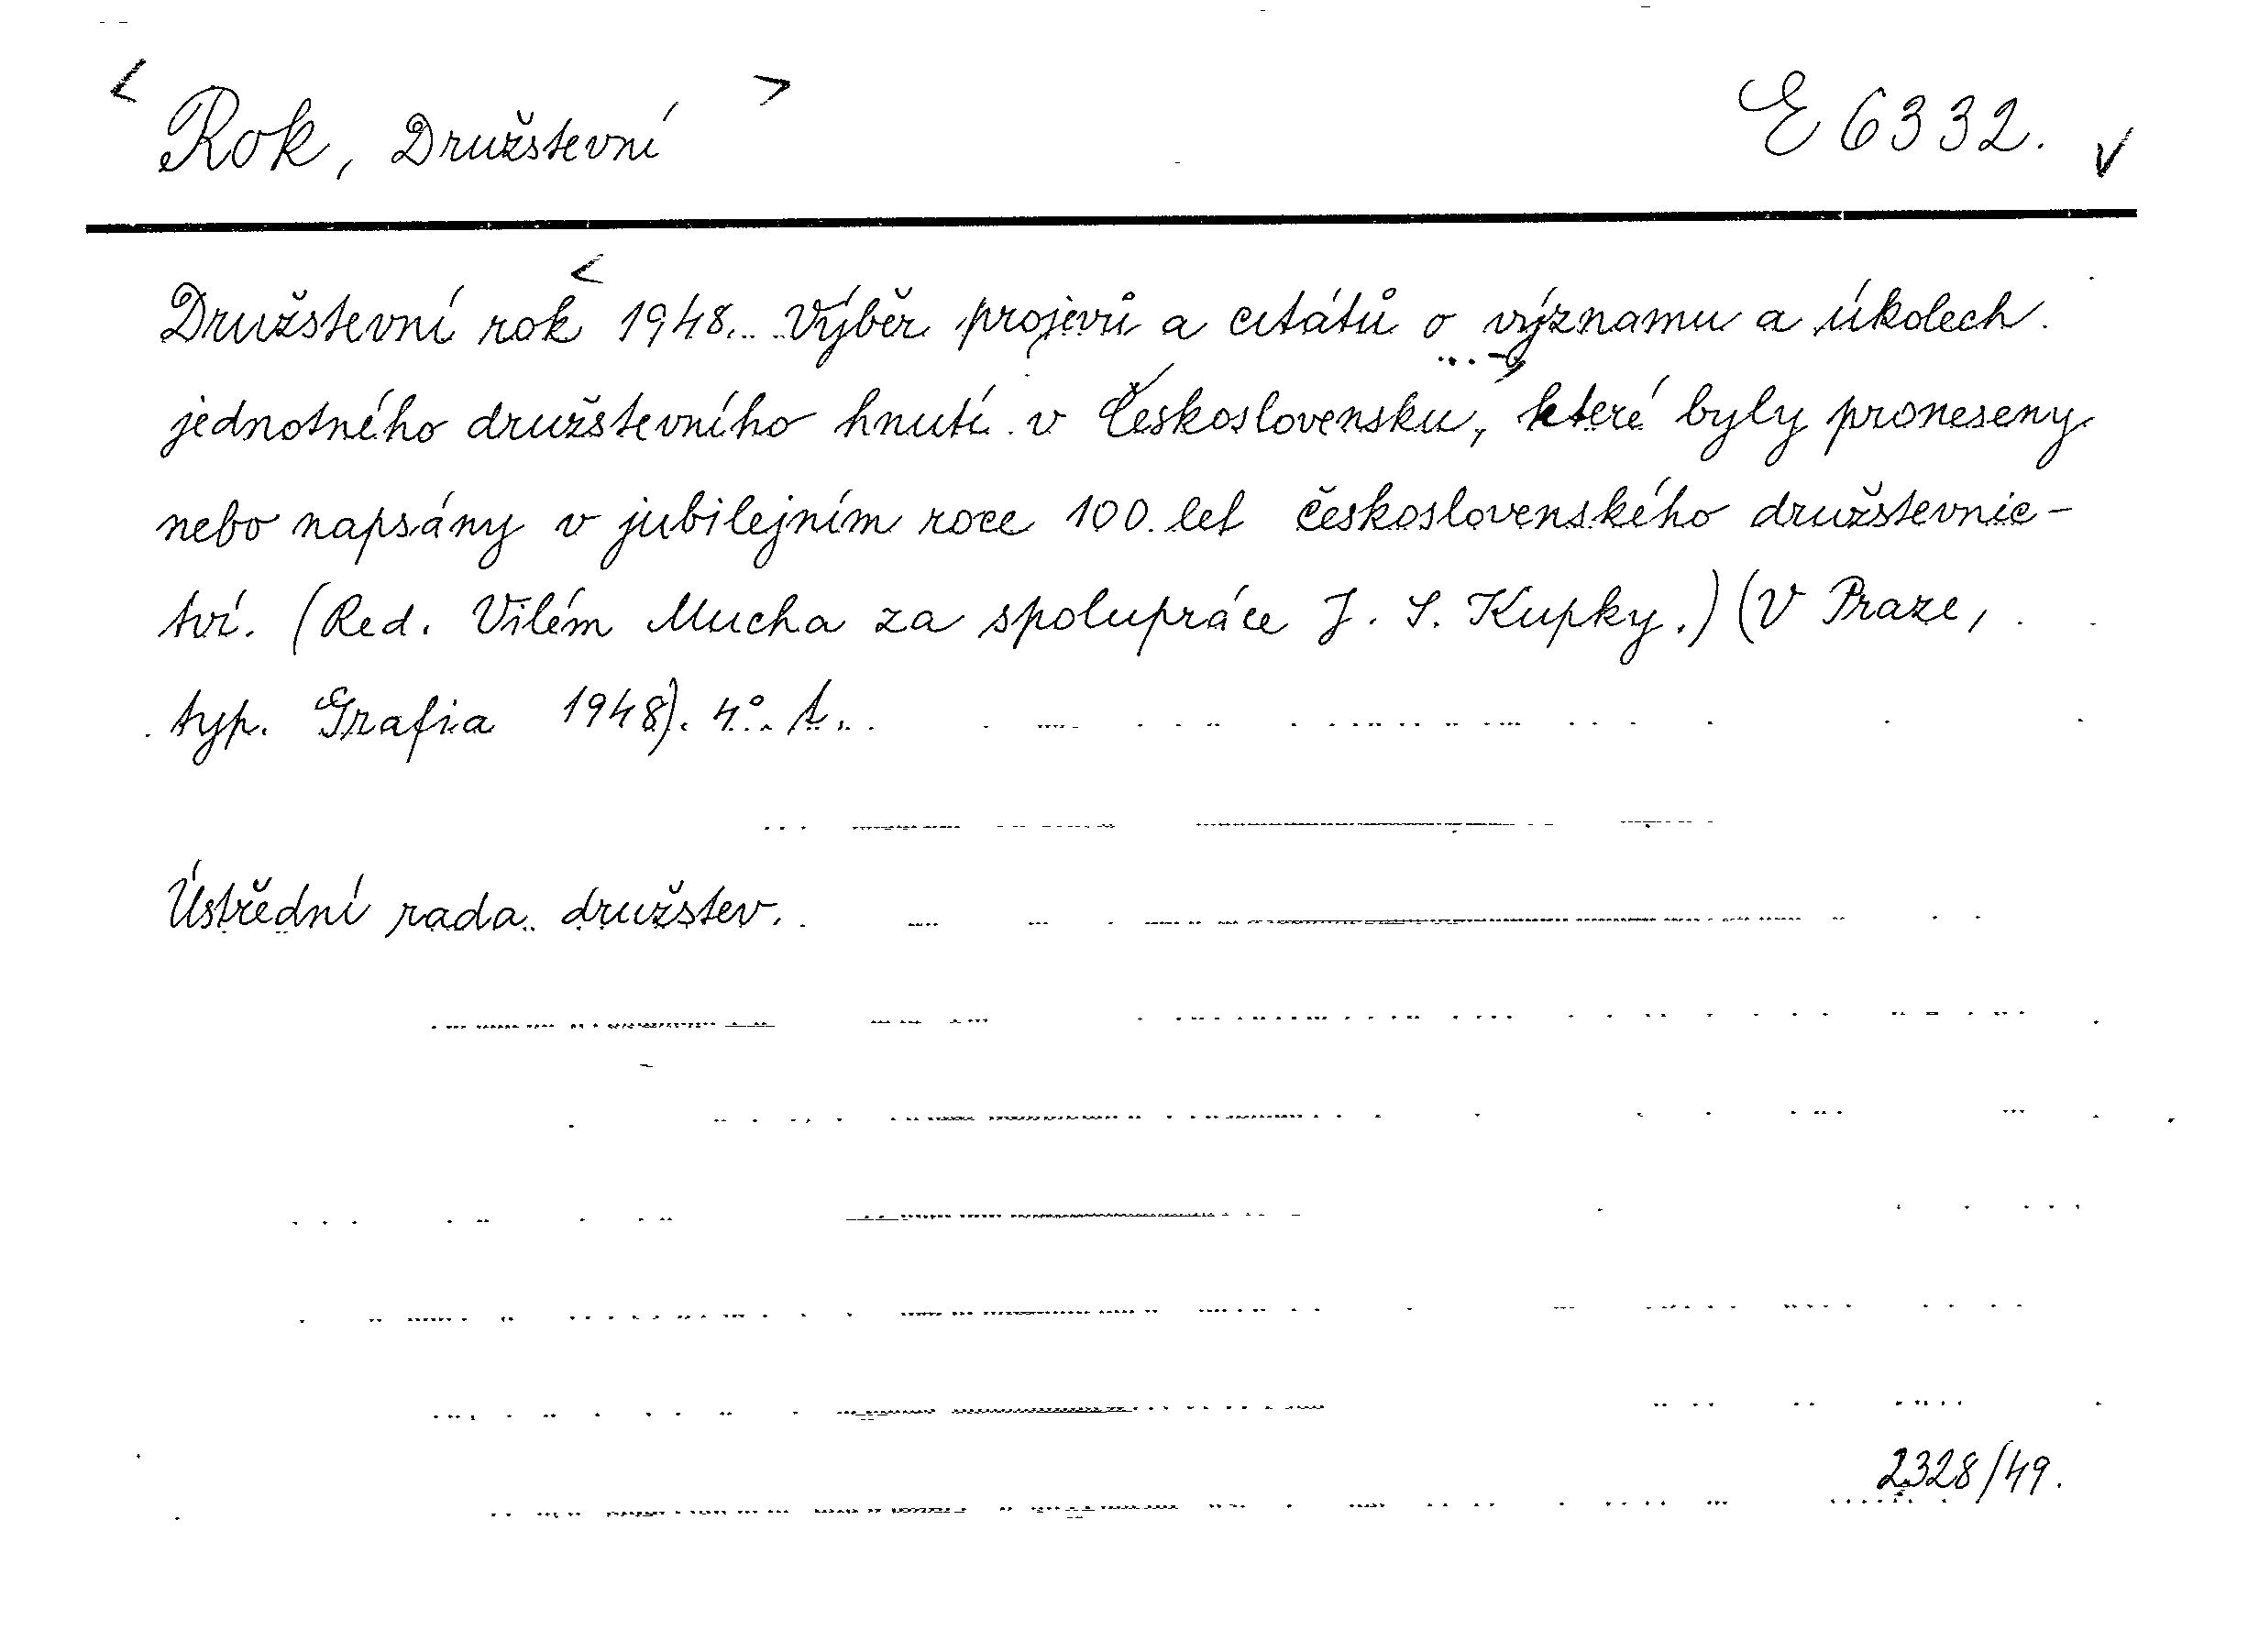 Rok, Družstevní
E 6332.
Družstevní rok 1948. Výběr projevů a citátů o významu a úkolech
jednotného družstevního hnutí v Československu, které byly proneseny
nebo napsány v jubilejním roce 100 let československého družstevnic-
tví. (Red. Vilém Mucha za spolupráce J. S. Kupky.) (V Praze,
typ. Grafia 1948). 4°. t.
Ústřední rada družstev.
2328/49.